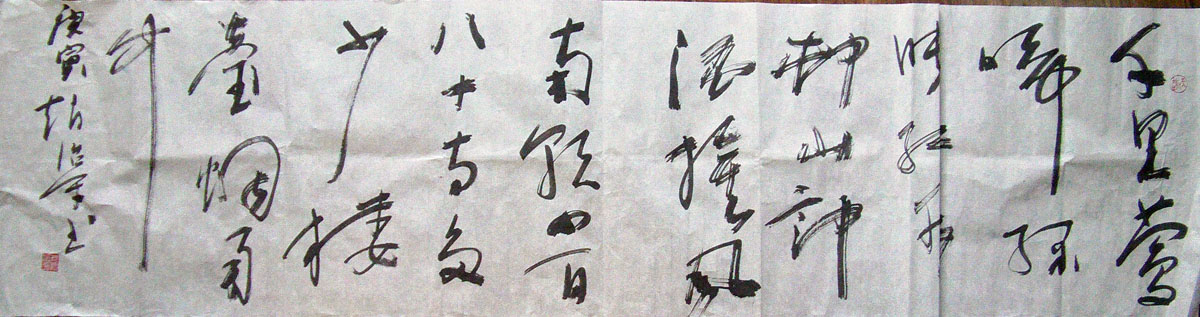 千里莺
啼绿
映红水
村山郭
酒旗风
南朝四百
八十寺多
少楼
臺烟雨
中
庚寅 赵 书